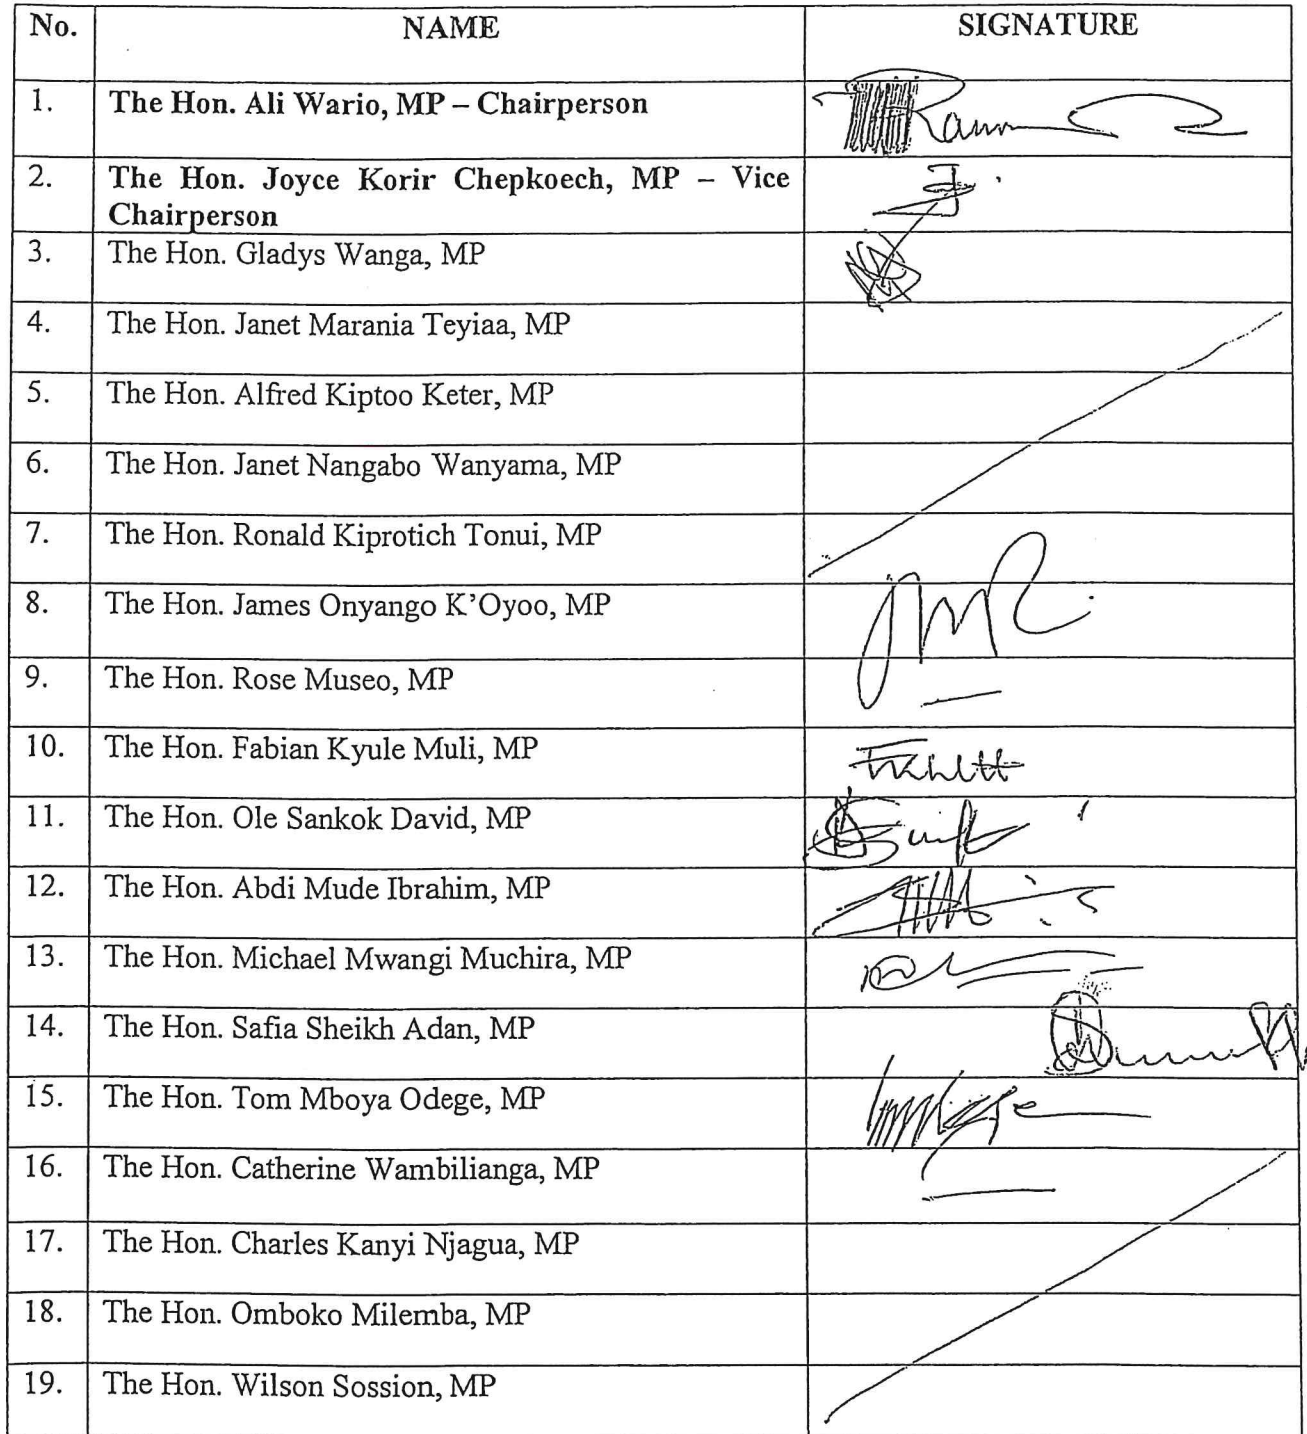 No. NAME SIGNATURE
1. The Hon. Ali Wario, MP – Chairperson
2. The Hon. Joyce Korir Chepkoech, MP – Vice
Chairperson
3. The Hon. Gladys Wanga, MP
4. The Hon. Janet Marania Teyiaa, MP
5. The Hon. Alfred Kiptoo Keter, MP
6. The Hon. Janet Nangabo Wanyama, MP
7. The Hon. Ronald Kiprotich Tonui, MP
8. The Hon. James Onyango K'Oyoo, MP
9. The Hon. Rose Museo, MP
10. The Hon. Fabian Kyule Muli, MP
11. The Hon. Ole Sankok David, MP
12. The Hon. Abdi Mude Ibrahim, MP
13. The Hon. Michael Mwangi Muchira, MP
14. The Hon. Safia Sheikh Adan, MP
15. The Hon. Tom Mboya Odege, MP
16. The Hon. Catherine Wambilianga, MP
17. The Hon. Charles Kanyi Njagua, MP
18. The Hon. Omboko Milemba, MP
19. The Hon. Wilson Sossion, MP